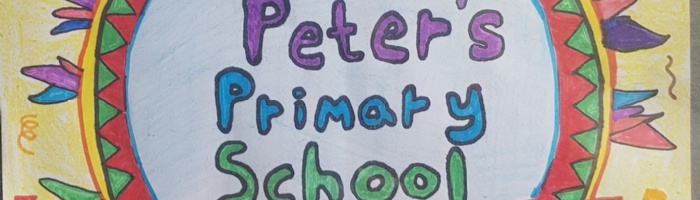 Peter's
Primary
School